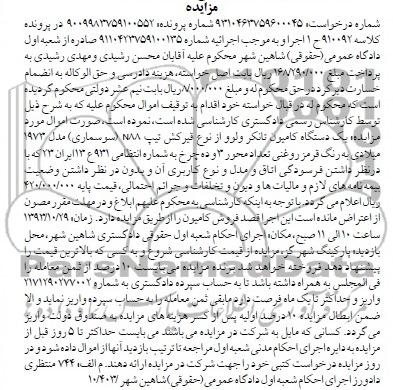 مزایده
شماره درخواست: ۹۳۱۰۴۶۳۷۵۹۶۰۰۰۴۵ شماره پرونده: ۹۰۰۹۹۸۳۷۵۹۱۰۰۵۵۲ در پرونده
کلاسه ۹۱۰۰۹۲ ح ۱ اجرا و به موجب اجرائیه شماره ۹۱۱۰۴۲۳۷۵۹۱۰۰۱۳۵ صادره از شعبه اول
دادگاه عمومی (حقوقی) شاهین شهر محکوم علیه آقایان محسن رشیدی و مهدی رشیدی به
پرداخت مبلغ ۱۶۸۷۹۰/۰۰۰ ریال بابت اصل خواسته، هزینه دادرسی و حق الوکاله به انضمام
خسارت دیرکرد در حق محکوم له و مبلغ ۷/۰۰۰/۰۰۰ ریال بابت نیم عشر دولتی محکوم گردیده
است که محکوم له در قبال خواسته خود اقدام به توقیف اموال محکوم علیه که به شرح ذیل
توسط کارشناس رسمی دادگستری کارشناسی شده است، نموده است، صورت اموال مورد
مزایده: یک دستگاه کامیون تانکر ولوو از نوع قیرکش تیپ N۸۸ (سوسماری) مدل ۱۹۷۳
میلادی به رنگ قرمز روغنی تعداد محور ۳ و ده چرخ به شماره انتظامی ۹۳۱ ع ۱۳ ایران ۲۳ که با
در نظر داشتن فرسودگی اتاق و مدل و نوع کاربری آن و بدون در نظر داشتن وضعیت
بیمه نامه های لازم و مالیات ها و دیون و تخلفات و جرائم احتمالی، قیمت پایه ۴۲۰/۰۰۰/۰۰۰
ریال اعلام می گردد. با توجه به اینکه کارشناسی به محکوم علیهم ابلاغ و در مهلت مقرر مصون
از اعتراض مانده است این اجرا قصد فروش کامیون را از طریق مزایده دارد. زمان: ۱۳۹۳/۱۰/۲۹
ساعت ۱۰ الی ۱۱ صبح، مکان: اجرای احکام شعبه اول حقوقی دادگستری شاهین شهر، محل
بازدید: پارکینگ شهر گز، مزایده از قیمت کارشناسی شروع و به کسی که بالاترین قیمت را
پیشنهاد دهد فروخته خواهد شد. برنده مزایده می بایست ۱۰ درصد از ثمن معامله را
فی المجلس به همراه داشته باشد تا به حساب سپرده دادگستری به شماره ۲۱۷۱۲۹۰۲۷۷۰۰۲
واریز و حداکثر تا یک ماه فرصت دارد مابقی ثمن معامله را به حساب سپرده واریز نماید و الا
ضمن ابطال مزایده ۱۰ درصد اولیه پس از کسر هزینه های مزایده به صندوق دولت واریز
می گردد. کسانی که مایل به شرکت در مزایده می باشند می بایست حداکثر تا ۵ روز قبل از
مزایده به دایره اجرای احکام مدنی شعبه اول مراجعه تا ترتیب بازدید آنها از اموال داده شود و در
روز مزایده درخواست کتبی خود را جهت شرکت در مزایده ارائه دهند. م الف: ۷۴۴ منتظری
دادورز اجرای احکام شعبه اول دادگاه عمومی (حقوقی) شاهین شهر /۱۰/۴۰۳